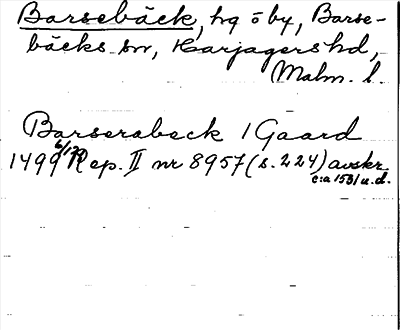 Barsebäck, hg ö by, Barse-
bäcks sn, Harjagers hd,
Malm. l.
Barserabeck / Gaard
1499 6/12 Rep. II nr 8957 (s. 224) avskr.
c:a 1531 u.d.